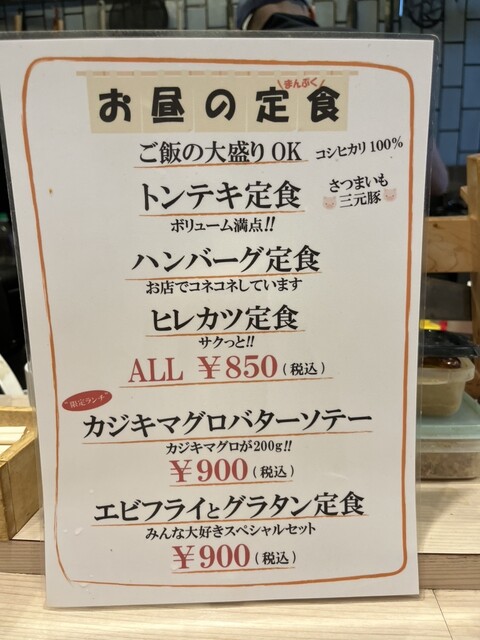 まんぷく
お昼の定食
ご飯の大盛りOK コシヒカリ100%
トンテキ定食
さつまいも
三元豚
ボリューム満点!!
ハンバーグ定食
お店でコネコネしています
ヒレカツ定食
サクっと!!
ALL ￥850(税込)
"限定ランチ"
カジキマグロバターソテー
カジキマグロが200g!!
￥900(税込)
エビフライとグラタン定食
みんな大好きスペシャルセット
￥900(税込)